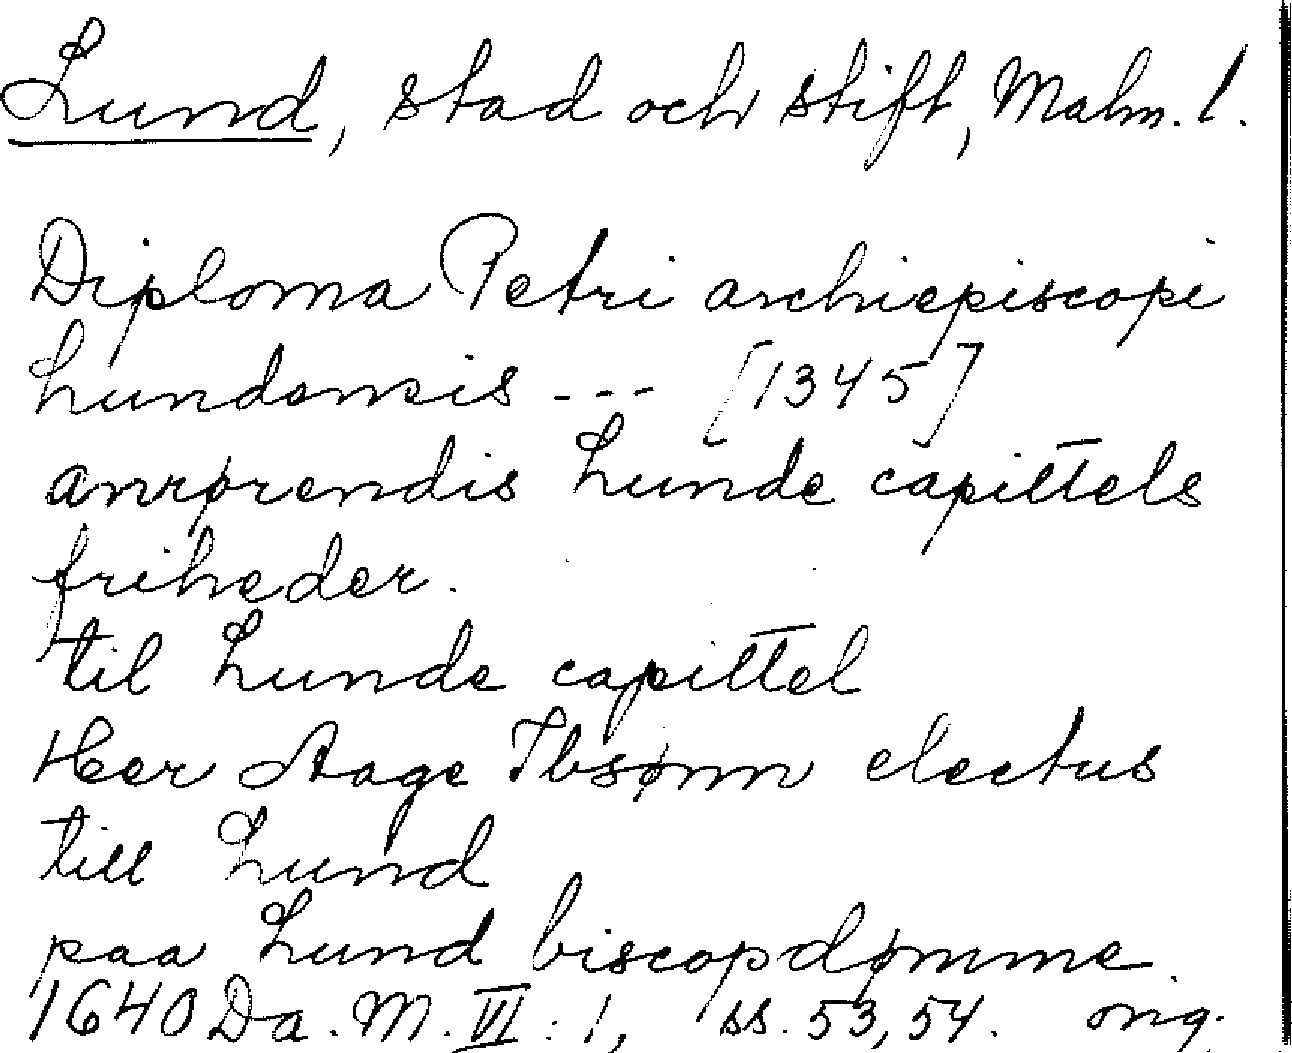 Lund, stad och stift, Malm. l.
Diploma Petri archiepiscopi
Lundensis --- [1345]
anrørendis Lunde capittels
friheder.
til Lunde capittel
Her Aage Ibsønn electus
till Lund
paa Lund biscopdømme.
1640 Da. M. VI : 1, ss. 53, 54. orig.